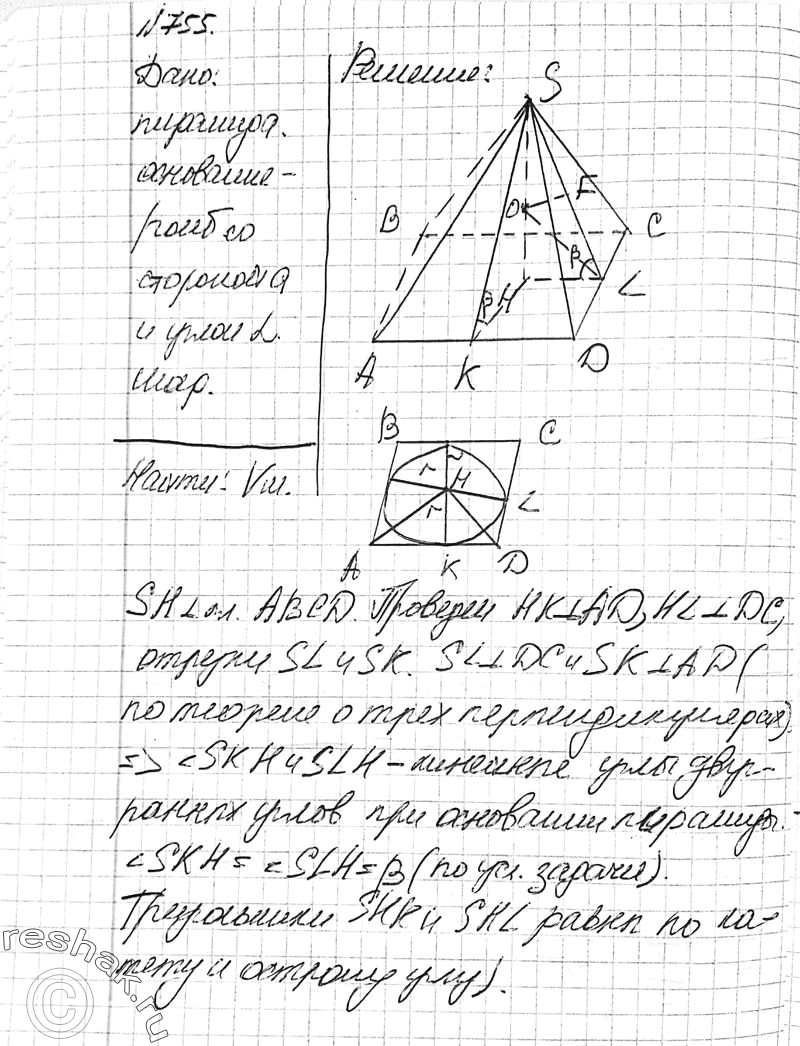 №755.
Дано:
пирамида.
основание –
ромб со
стороной a
и углом α.
шар.
Найти: Vш.
Решение:
S
B
O
F
C
β
L
β
H
A
K
D
B
C
r
H
L
r
A
K
D
SH⊥пл. ABCD. Проведем HK⊥AD, HL⊥DC,
отрезки SL и SK. SL⊥DC и SK⊥AD (
по теореме о трех перпендикулярах)
=> ∠SKH и SLH – линейные углы двугр-
ранных углов при основании пирамиды.
∠SKH = ∠SLH = β (по усл. задачи).
Треугольники SHK и SHL равны по ка-
тету и острому углу).
reshak.ru
©